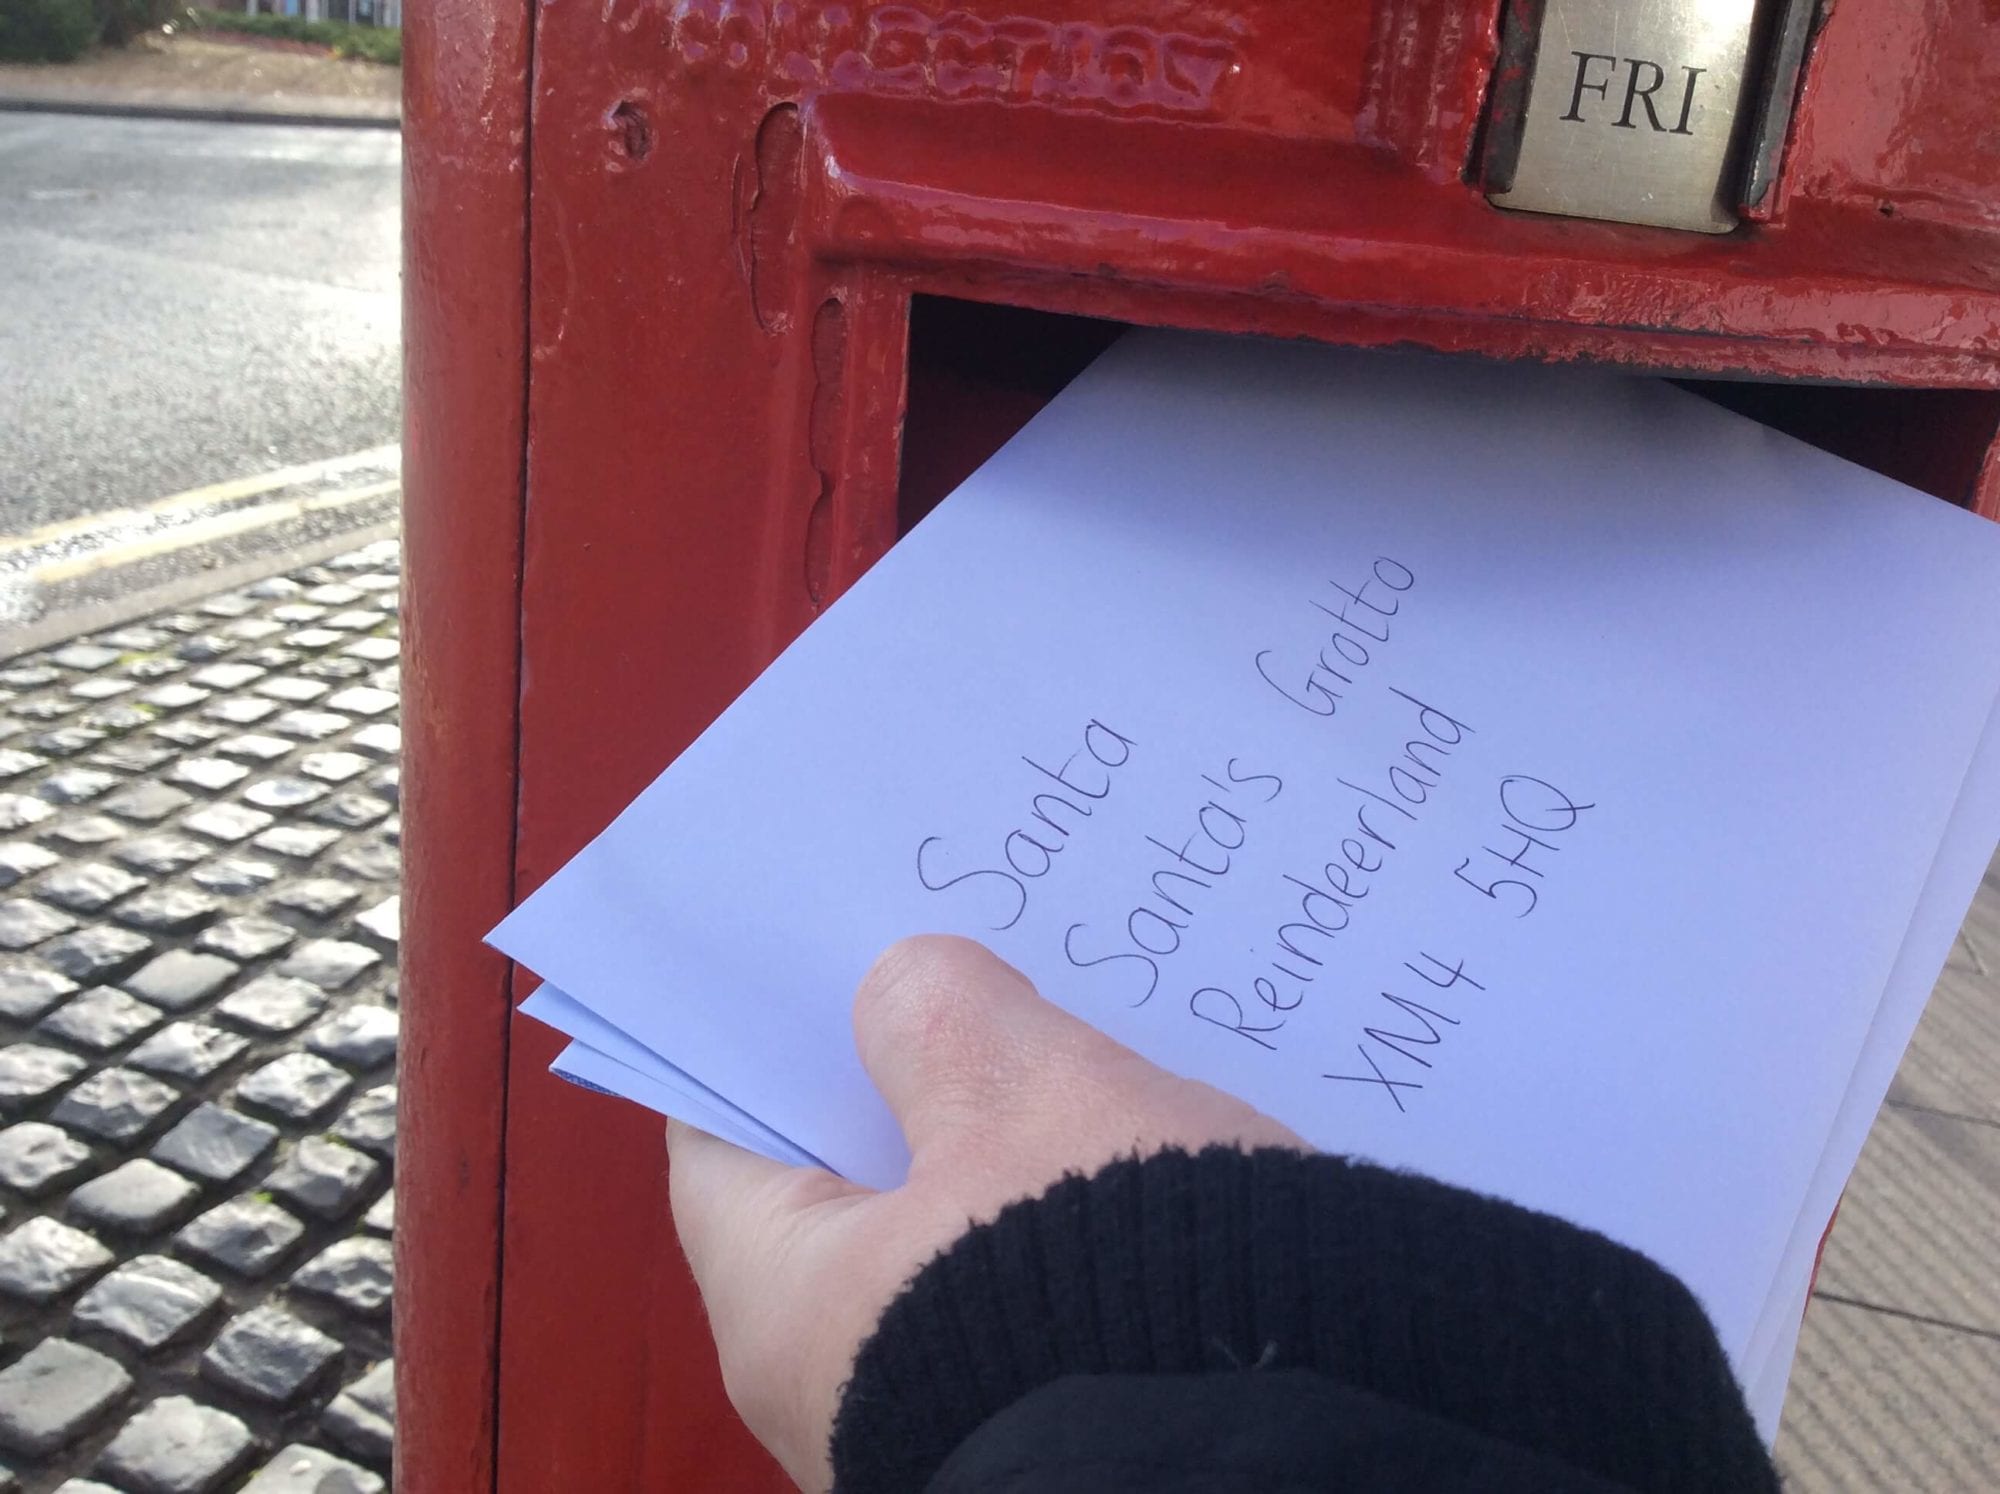 COLLECTION
FRI
Santa
Santa's Grotto
Reindeerland
XM4 5HQ